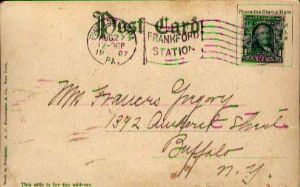 Post Card
AUG 27
12-30P
1907
PA.
FRANKFORD
STATION
Mr Francis Gregory
1392 Amherst Street
Buffalo
N.Y.
This side is for the address.